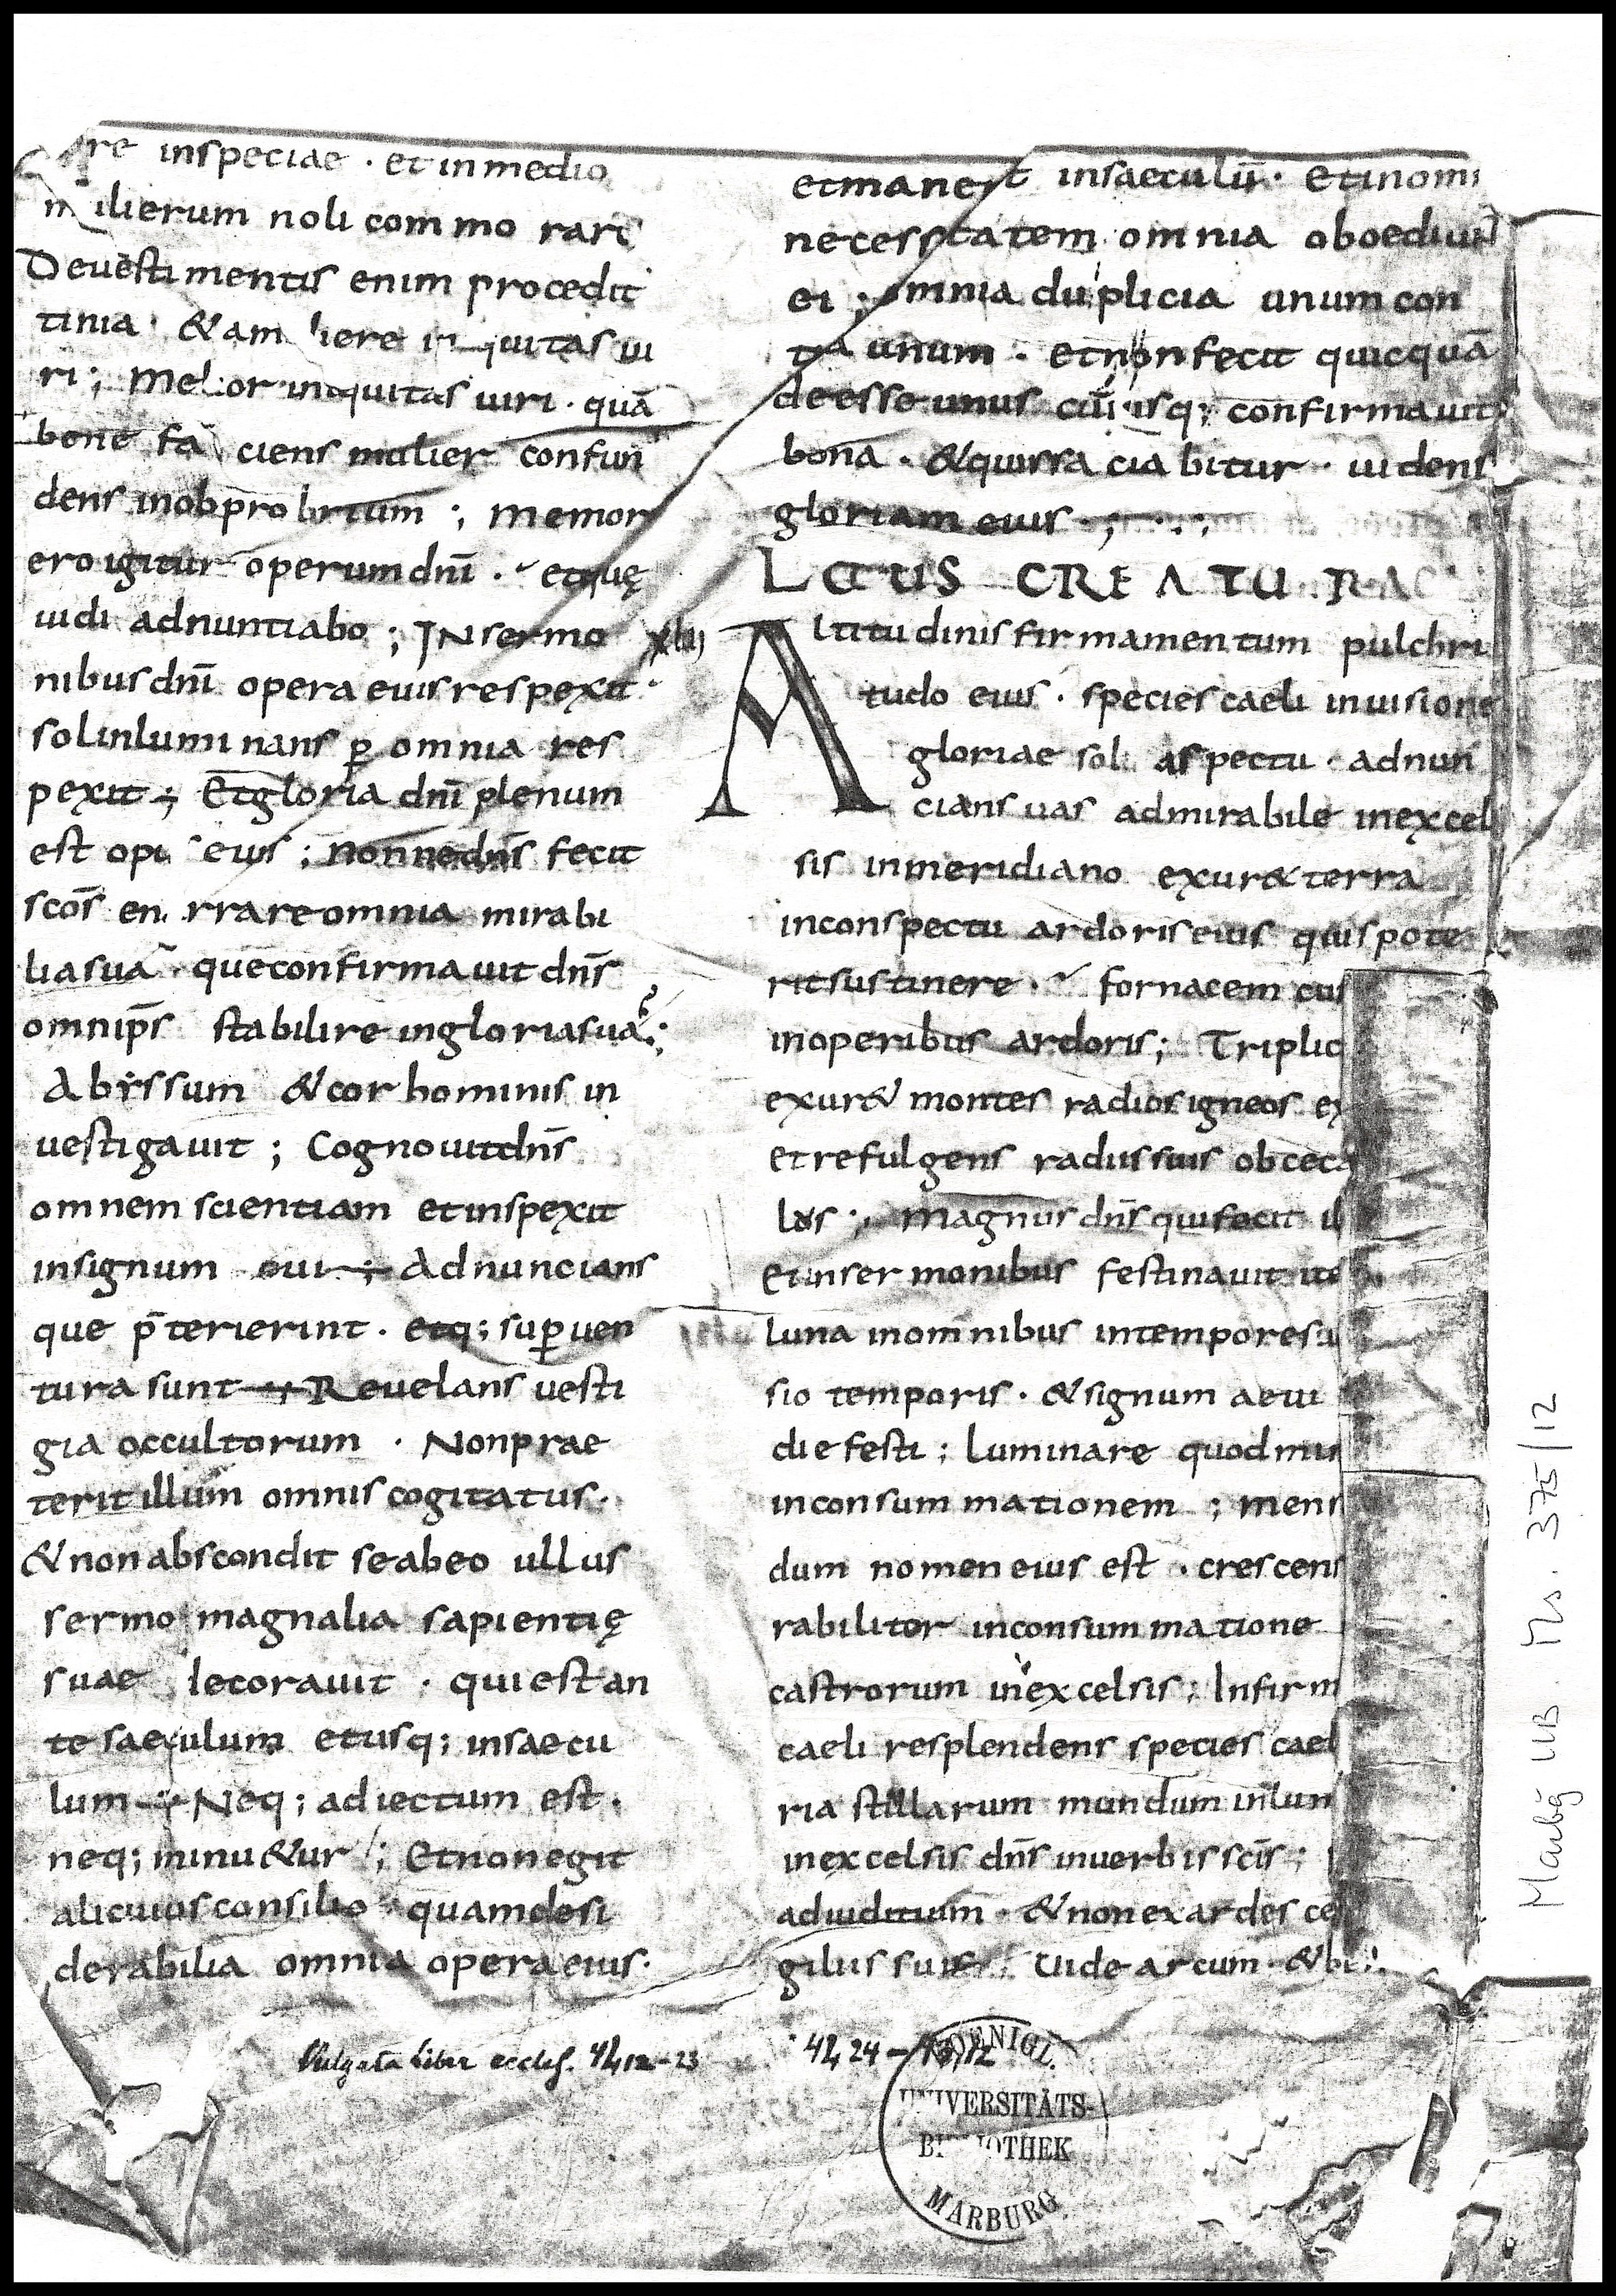 re inspeciae · et inmedio
mulierum noli commorari
Deuestimentis enim procedit
tinia · & a muliere iniquitas ui
ri ; Melior iniquitas uiri · quā
bene faciens mulier confun
dens inobprobrium ; Memor
ero igitur operum dnī · et quę
uidi adnuntiabo ; IN sermo
nibus dnī opera eius respexit ·
sol inluminans p̱ omnia res
pexit ; Et gloria dnī plenum
est opus eius ; Nonne dn̄s fecit
scōs enarrare omnia mirabi
lia suā · que confirmauit dn̄s
omnip̄s stabilire in gloria sua ;
Abẏssum & cor hominis in
uestigauit ; Cognouit dn̄s
omnem scientiam et inspexit
insignum eui ; Adnuncians
que p̄terierint · et q; sup̱uen
tura sunt ; Reuelans uesti
gia occultorum · Non prae
terit illum omnis cogitatus ·
& non abscondit se ab eo ullus
sermo magnalia sapientię
suae decorauit · qui est an
te saeculum et usq; in saecu
lum ; Neq; adiectum est ·
neq; minu&ur ; Et non egit
alicuius consilio quam desi
derabilia omnia opera eius ·
Vulgata Liber eccles. 42,12-23
et manent insaeculū · et in omi
necessitatem omnia oboediun
ei ; omnia duplicia unum con
tra unum · et non fecit quicquā
deesse unus cuiusq; confirmauit
bona · & quis sa cia bitur · uidens
gloriam eius ;
LCTUS CREATURAE
xliij Altitudinis firmamentum pulchri
tudo eius · species caeli in uisione
gloriae sol aspectu · adnun
cians uas admirabile in excel
sis in meridiano exur& terra
in conspectu ardoris eius quis pote
rit sustinere · fornacem cus
in operibus ardoris ; Triplic
exur& montes radios igneos ex
et refulgens radiis suis obceca
los ; Magnus dn̄s qui fecit il
Et in sermonibus festinauit ite
luna in omnibus in tempore su
sio temporis · & signum aeui
die festi ; Luminare quod min
in consummationem ; Mens
dum nomen eius est · crescens
rabiliter in consummatione
castrorum in excelsis ; In firm
caeli resplendens species cael
ria stellarum mundum in lum
in excelsis dn̄s in uerbis scīs ;
ad iuditium · & non exardesce
giliis suis ; Uide arcum · & be
42, 24 - 43,12
KOENIGL.
UNIVERSITÄTS-
BIBLIOTHEK
MARBURG
Marbg UB. Ms. 375/12